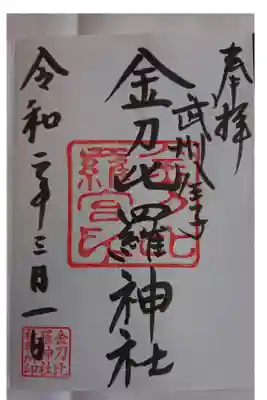 奉拝
武州八王子
金刀比羅神社
令和二年三月一日
金刀比
羅神社